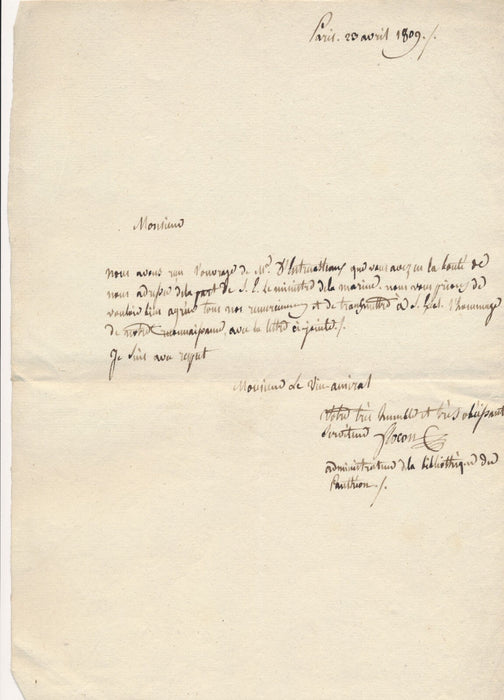 Paris. 23 avril 1809./.
Monsieur
nous avons reçu l'ouvrage de Mr. D'Entrecasteaux que vous avez eu la bonté de
nous adresser de la part de S. E. le ministre de la marine. nous vous prions de
vouloir bien agréer tous nos remerciemens et de transmettre à S. Ex. l'hommage
de notre reconnaissance, avec la lettre ci-jointe./.
Je suis avec respect
Monsieur Le Vice-amiral
Votre très humble et très obéissant
serviteur
administrateur de la bibliothèque du
Panthéon./.